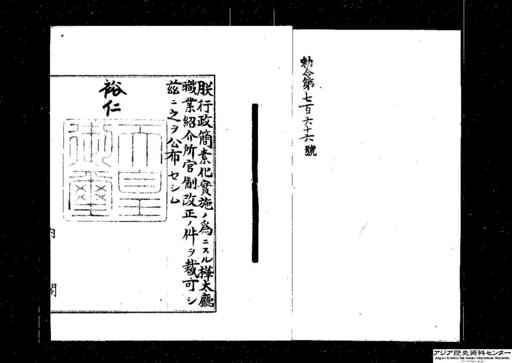 勅令第七百六十六號
朕行政簡素化實施ノ爲ニスル樺太廳
職業紹介所官制改正ノ件ヲ裁可シ
茲ニ之ヲ公布セシム
裕仁
天皇
御璽
内閣
アジア歴史資料センター
Japan Center for Asian Historical Records